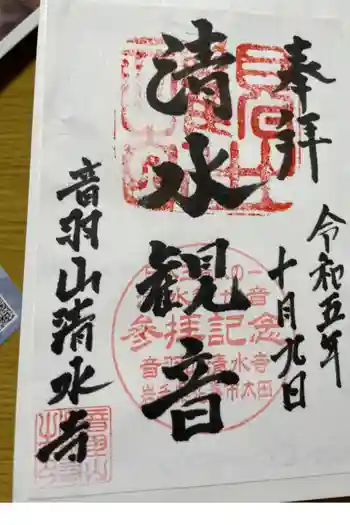 奉拝
令和五年
十月九日
清水観音
音羽山清水寺
参拝記念